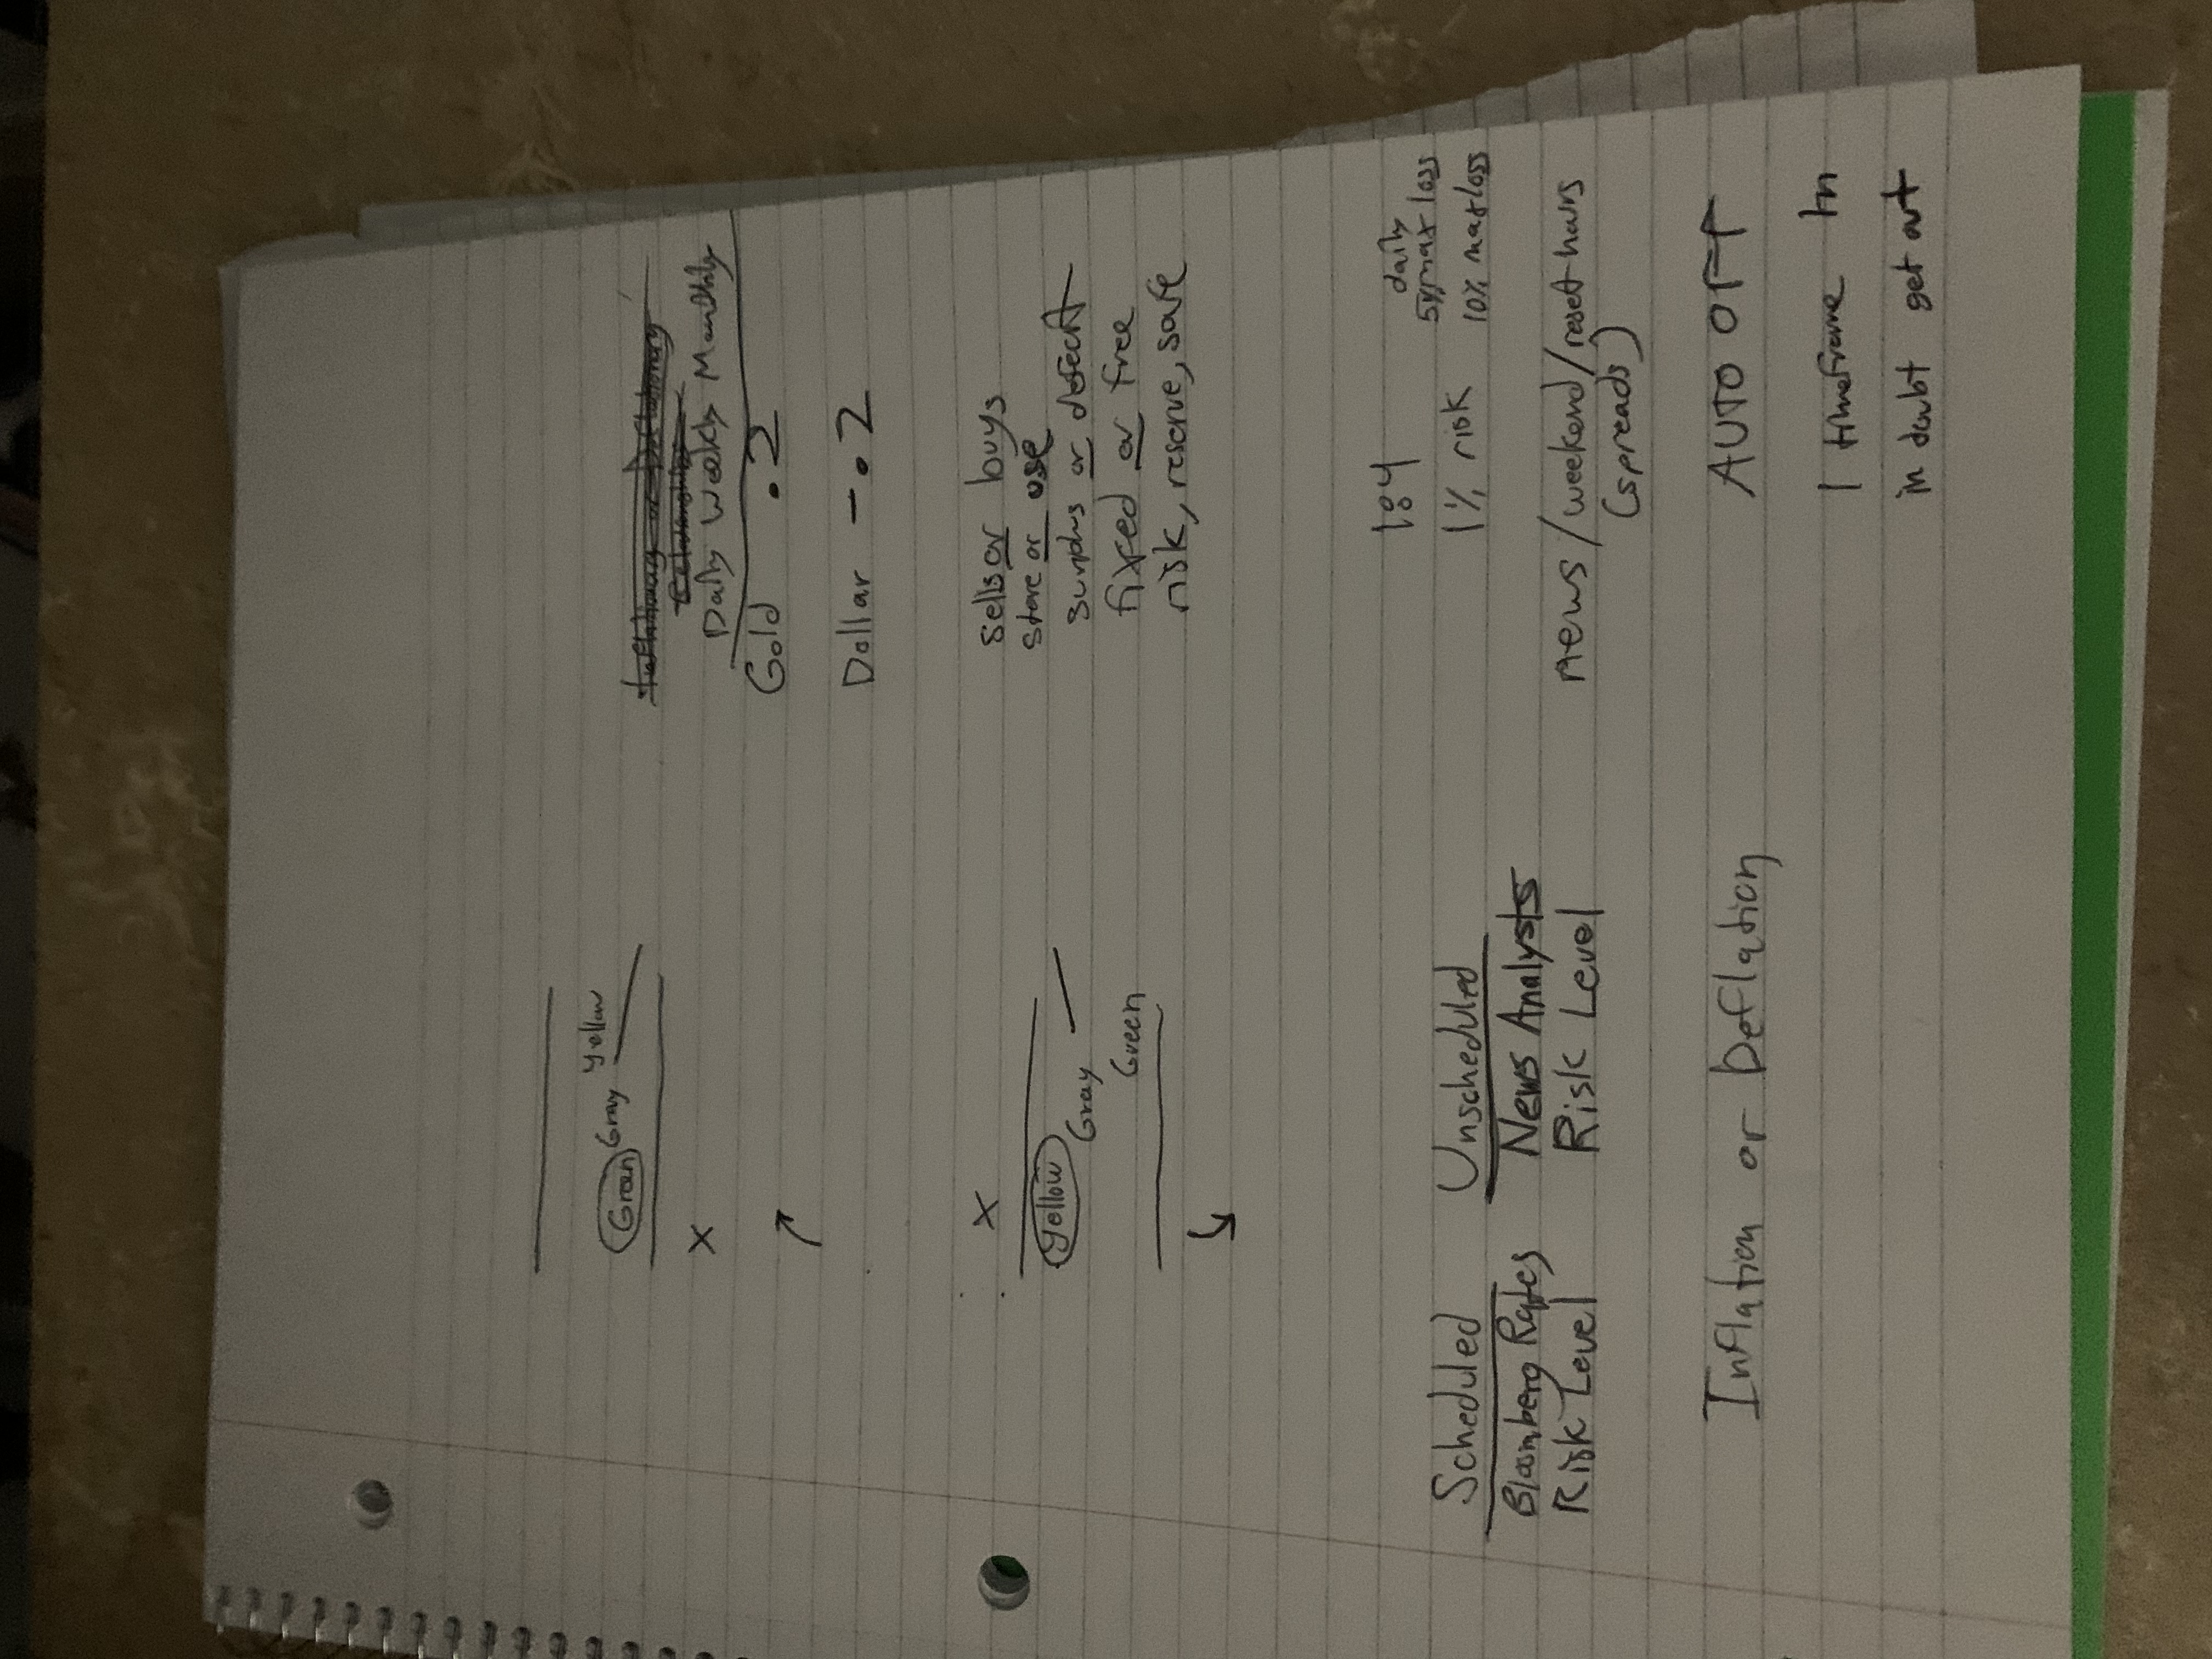 Yellow
Green Gray
X
Inflationary or Deflationary
Relationships
Daily Weekly Monthly
Gold .2
Dollar -.2
X
Yellow
Gray
Green
sells or buys
store or use
surplus or defecit
fixed or free
risk, reserve, safe
Scheduled
Bloomberg Rates
Risk Level
Unscheduled
News Analysts
Risk Level
Inflation or Deflation
1:4
1% risk
daily
5% max loss
10% max loss
news / weekend / reset hours
(spreads)
AUTO OFF
1 timeframe In
in doubt get out